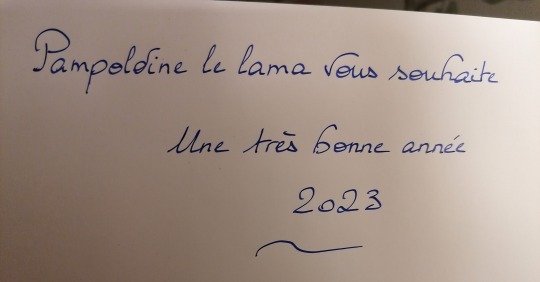 Pampoldine le lama vous souhaite
Une très bonne année
2023